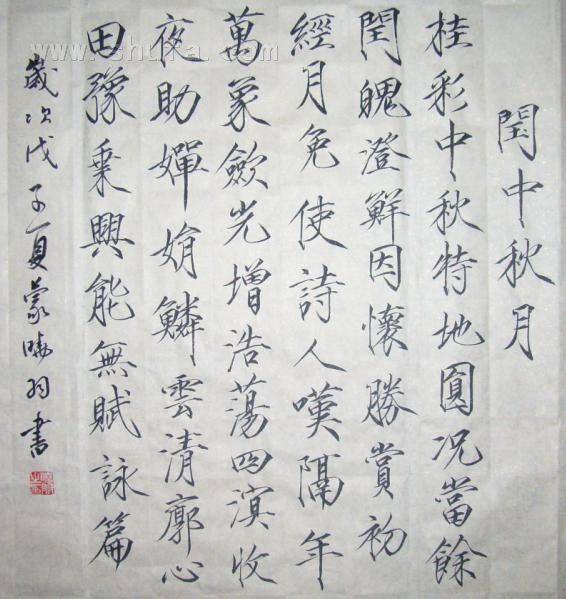 閏中秋月
桂彩中秋特地圓況當餘
閏魄澄鮮因懷勝賞初
經月免使詩人嘆隔年
萬象歛光增浩蕩四溟收
夜助嬋娟鱗雲清廓心
田豫乘興能無賦詠篇
歲次戊子夏蒙羽書